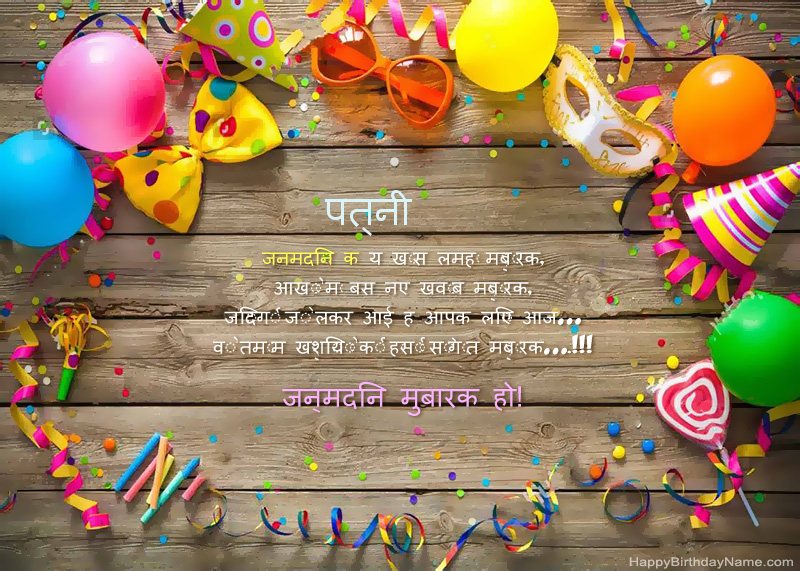 पत्नी
जनमदिन क य खास लमह मबारक,
आखों म बस नए खवाब मबारक,
जिंदगी जो लकर आई ह आपक लिए आज...
वो तमाम खुशियों की हसीं सौगात मबारक...!!!
जन्मदिन मुबारक हो!
HappyBirthdayName.com